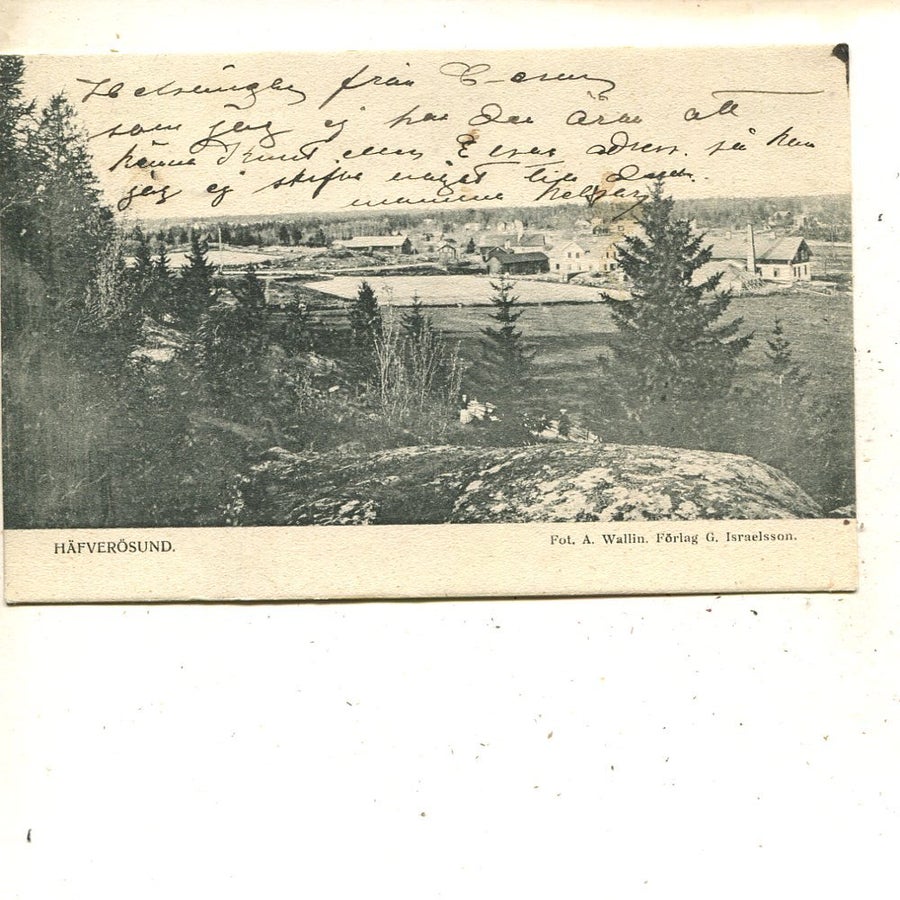 Helsningar från
som jag ej har den äran att
känna Knut eller Elsas adress. så kan
jag ej skrifva något till dem.
mamma helsar
HÄFVERÖSUND.
Fot. A. Wallin. Förlag G. Israelsson.